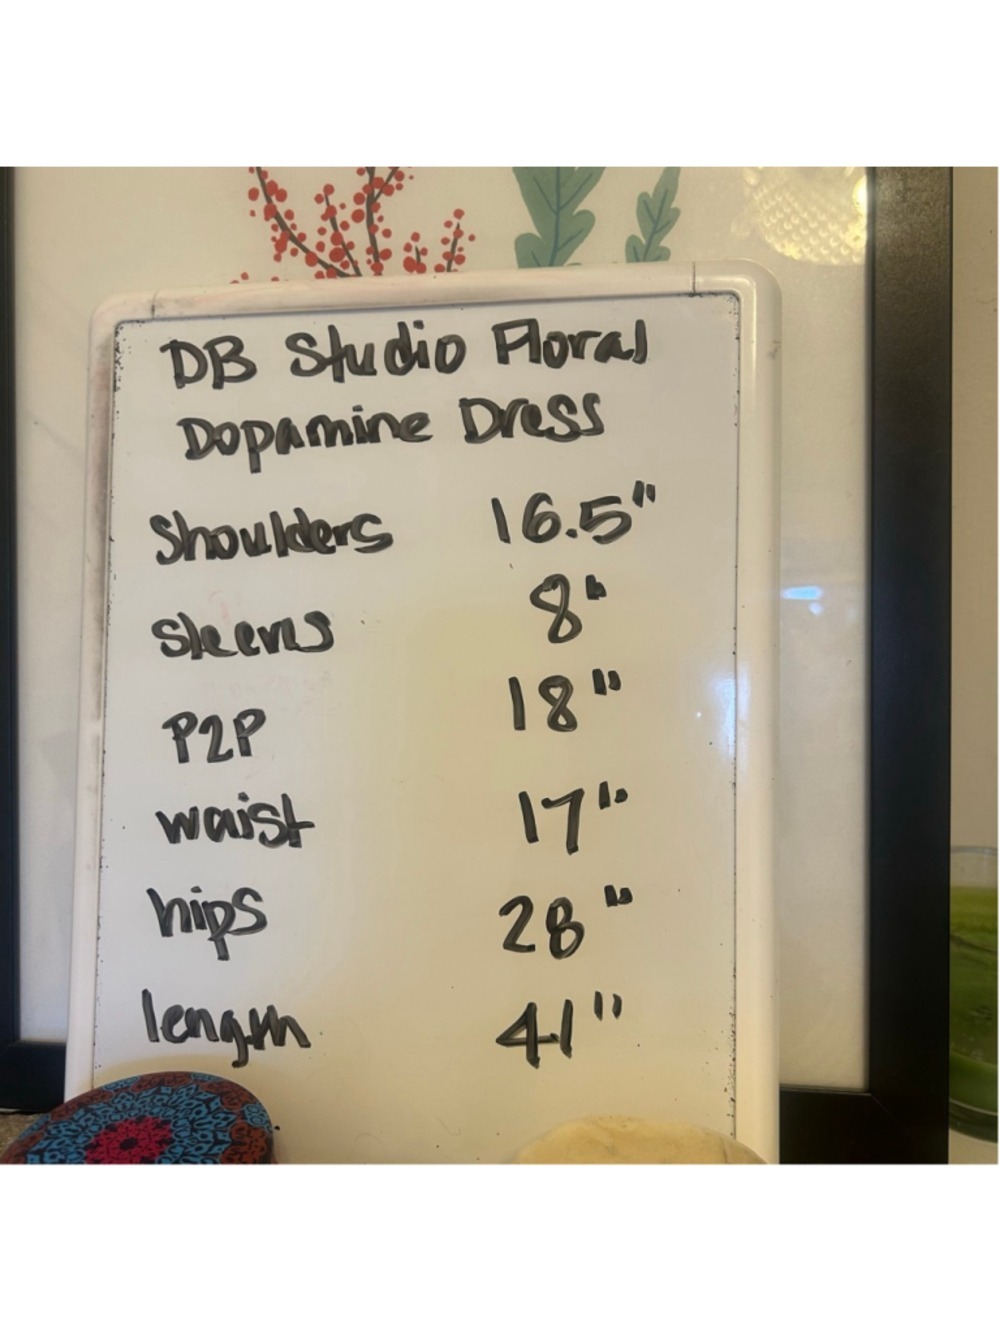 DB Studio Floral
Dopamine Dress
Shoulders 16.5"
Sleeves 8"
P2P 18"
waist 17"
hips 28"
length 41"